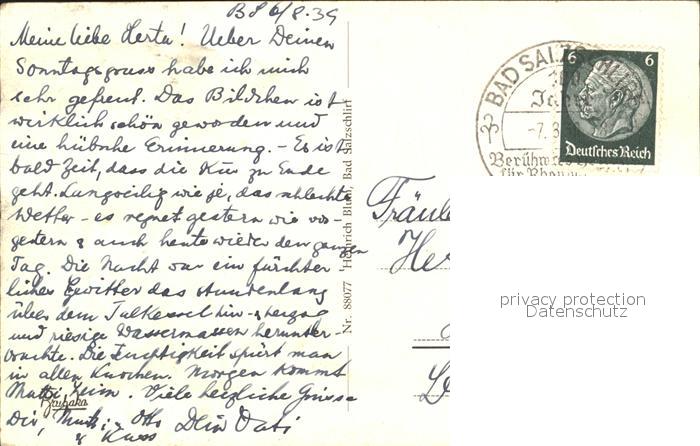 B8 6/8.39
Meine liebe Herta! Ueber Deinen
Sonntagsgruss habe ich mich
sehr gefreut. Das Bildchen ist
wirklich schön geworden und
eine hübsche Erinnerung. - Es ist
bald Zeit, dass die Kur zu Ende
geht. Langweilig wie je, das schlechte
Wetter - es regnet gestern wie vor-
gestern & auch heute wieder den ganzen
Tag. Die Nacht war ein fürchter-
liches Gewitter das stundenlang
über dem Talkessel hin- & herzog
und riesige Wassermassen herunter-
brachte. Die Feuchtigkeit spürt man
in allen Knochen. Morgen kommt
Mutti heim. Viele herzliche Grüsse
Dir, Mutti, Otto Dein Vati
& Kuss
Bruhaka
Nr. 88077 Heinrich Blum, Bad Salzschlirf
BAD SALZSCHLIRF
100
-7.8
Berühm
für Rheu
6 6
Deutsches Reich
Fräule
Her
privacy protection
Datenschutz